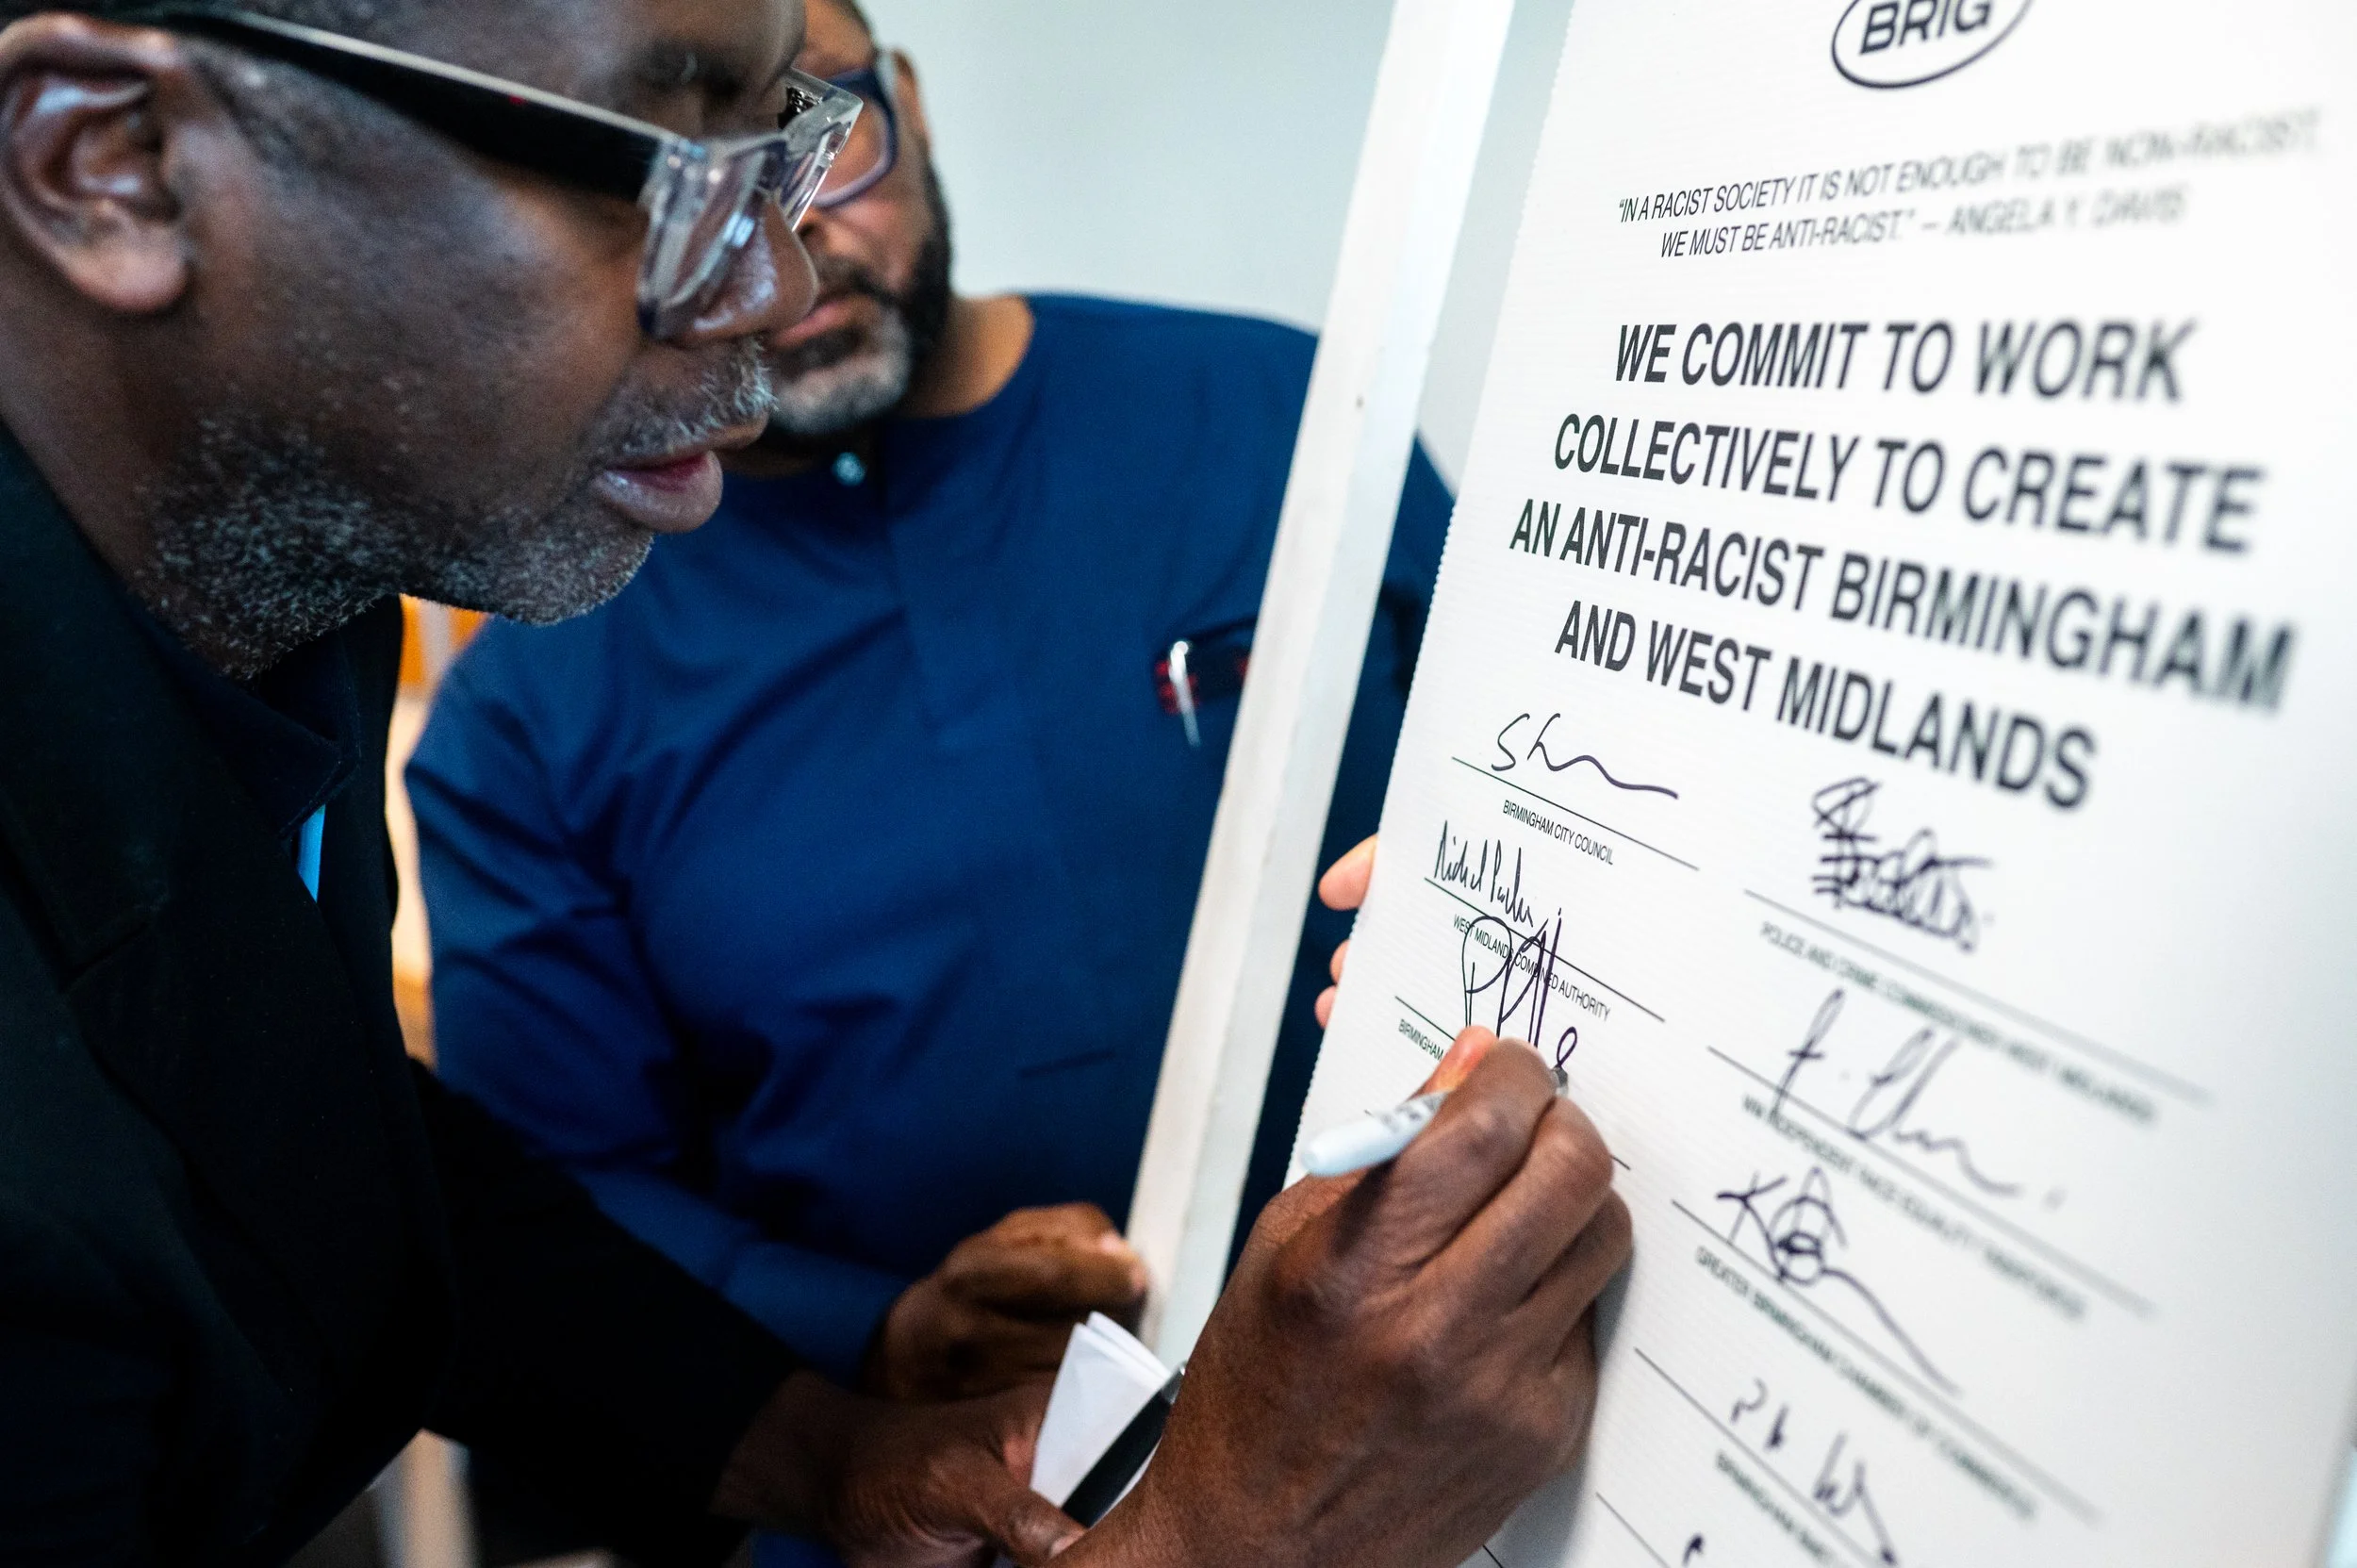 BRIG
"IN A RACIST SOCIETY IT IS NOT ENOUGH TO BE NON-RACIST,
WE MUST BE ANTI-RACIST." – ANGELA Y. DAVIS
WE COMMIT TO WORK
COLLECTIVELY TO CREATE
AN ANTI-RACIST BIRMINGHAM
AND WEST MIDLANDS
BIRMINGHAM CITY COUNCIL
POLICE AND CRIME COMMISSIONER WEST MIDLANDS
WEST MIDLANDS COMBINED AUTHORITY
WM INDEPENDENT RACE EQUALITY TASKFORCE
BIRMINGHAM
GREATER BIRMINGHAM CHAMBER OF COMMERCE
BIRMINGHAM